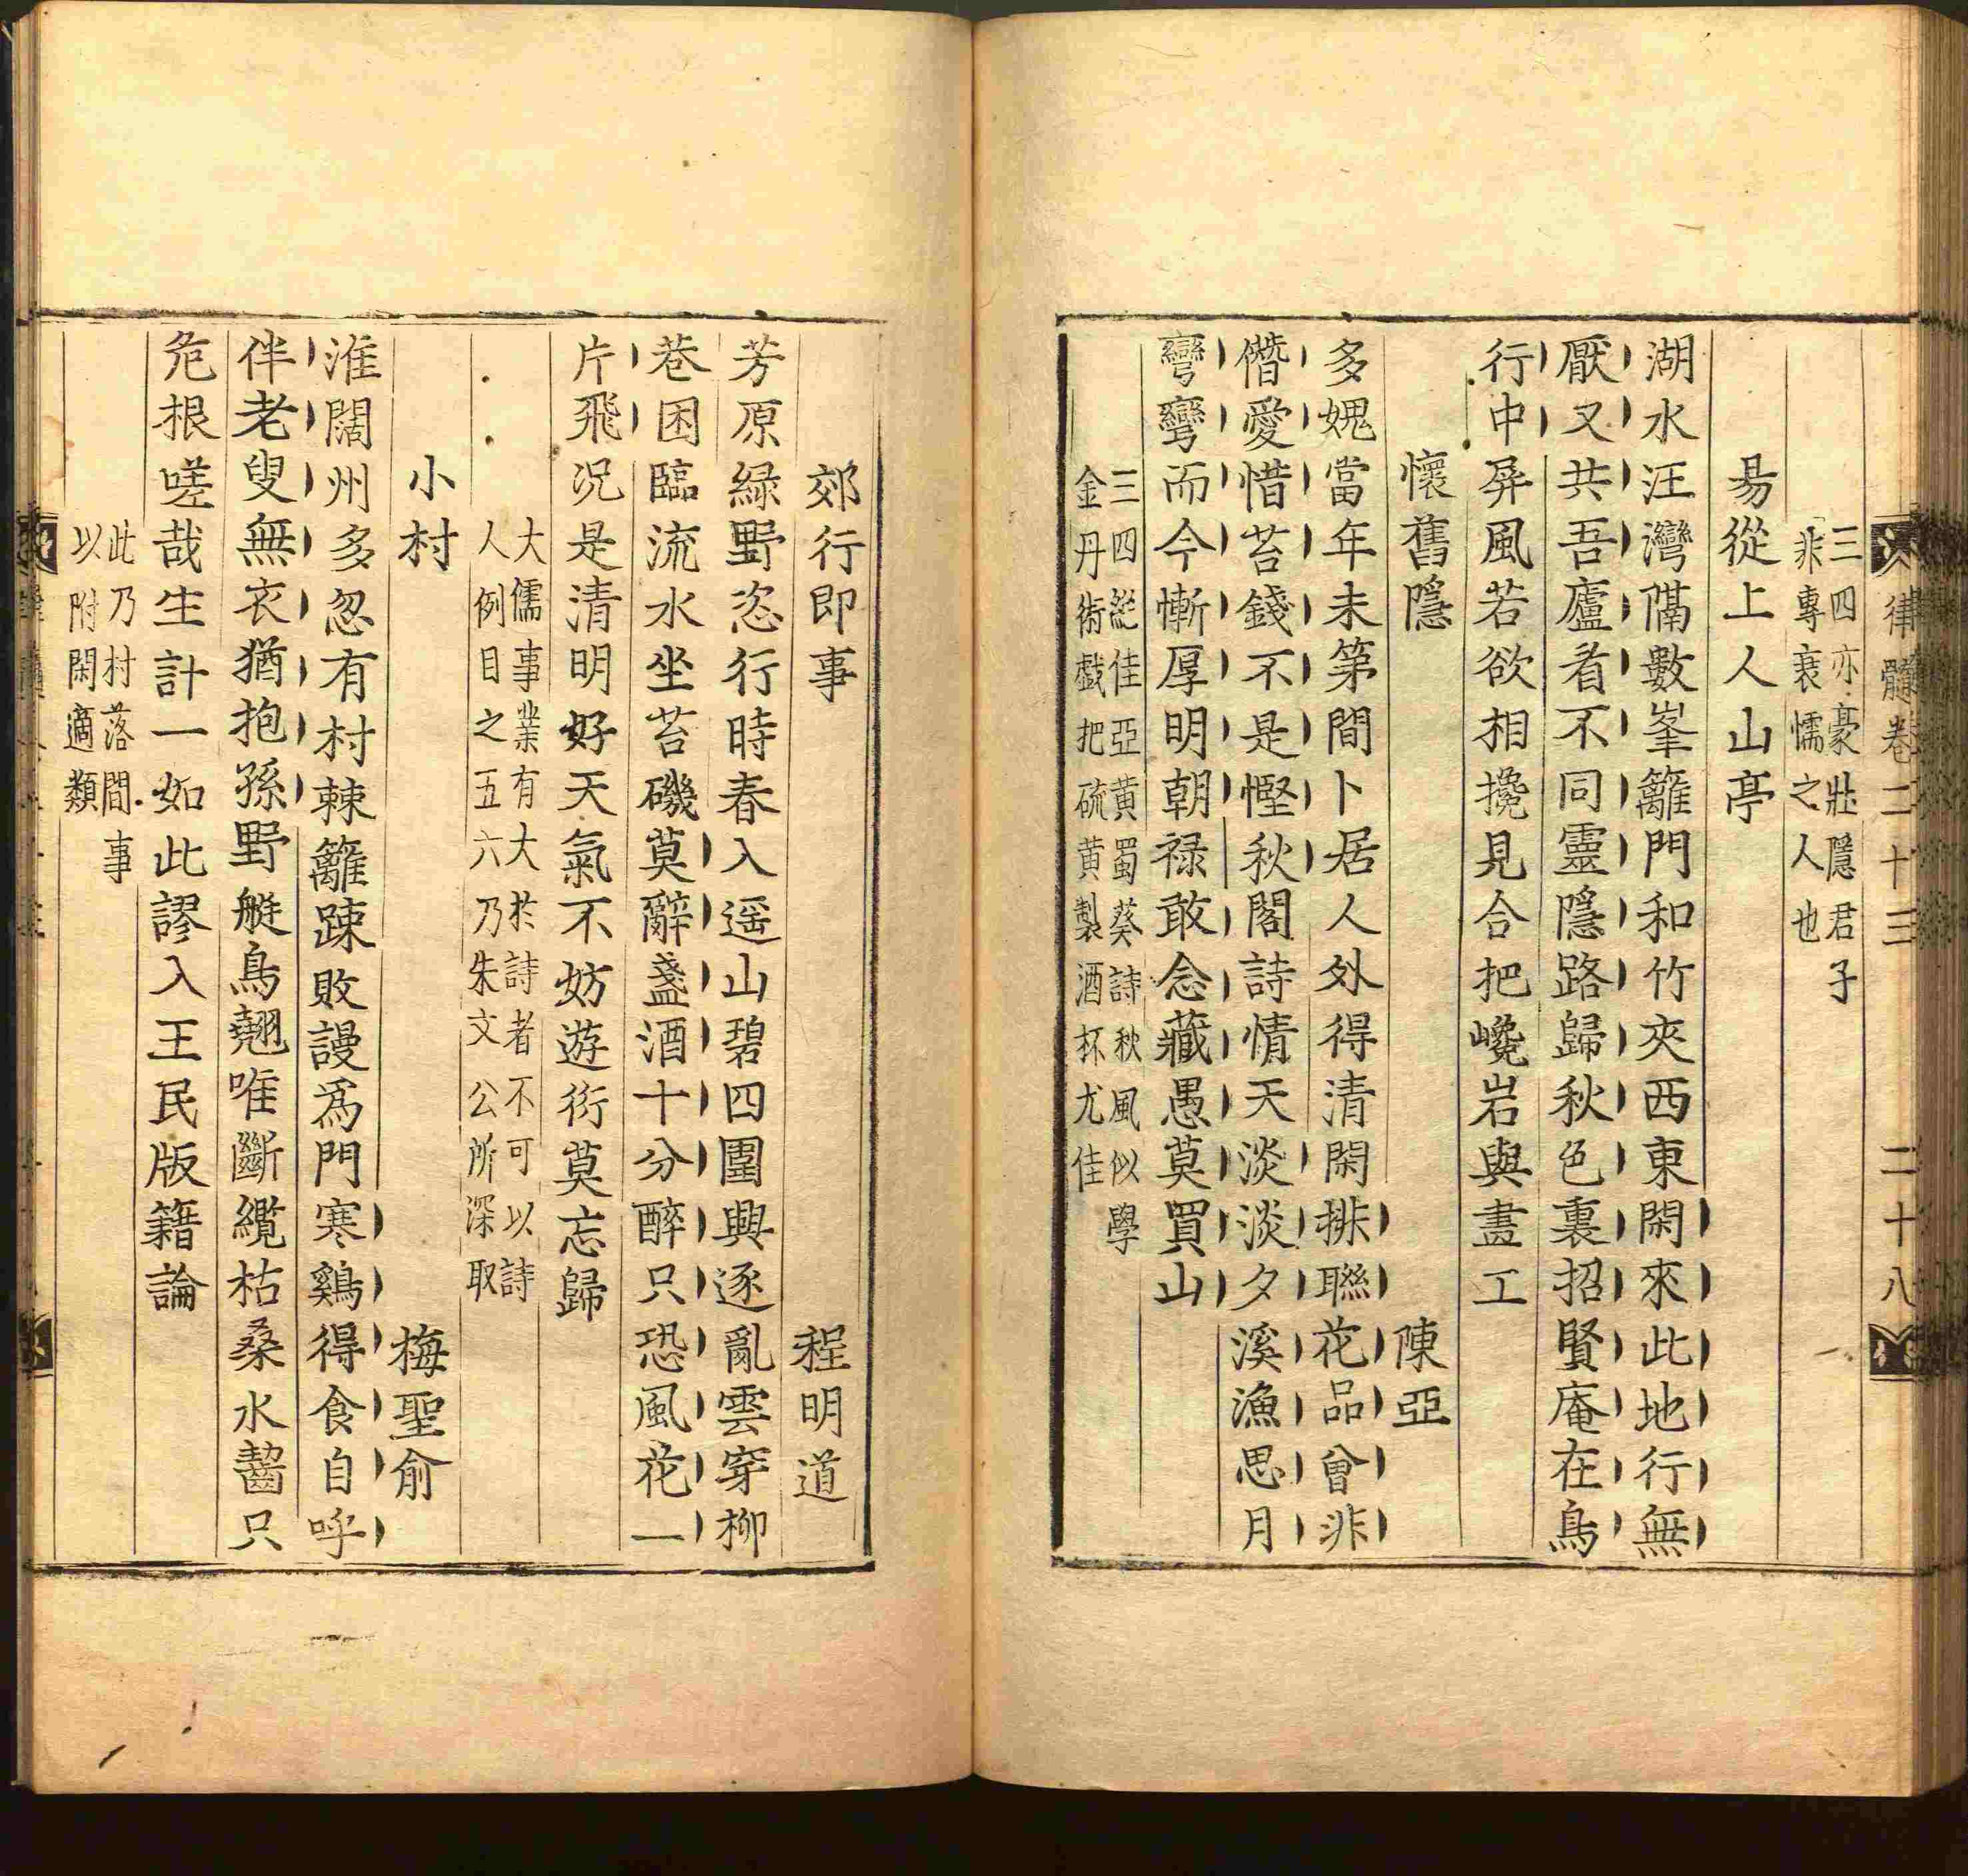 律髓卷二十三 二十八
三四亦豪壯隱君子
非專衰懦之人也
昜從上人山亭
湖水汪灣隔數峯籬門和竹夾西東閑來此地行無
厭又共吾廬看不同靈隱路歸秋色裏招賢庵在鳥
行中屏風若欲相攙見合把巉岩與畫工
懷舊隱 陳亞
多媿當年未第間卜居人外得清閑排聯花品曾非
僭愛惜苔錢不是慳秋閣詩情天淡淡夕溪漁思月
彎彎而今慚厚明朝禄敢念藏愚莫買山
三四縱佳亞黄蜀葵詩秋風似學
金丹術戲把硫黄製酒杯尤佳
郊行即事 程明道
芳原綠野恣行時春入遥山碧四圍興逐亂雲穿柳
巷困臨流水坐苔磯莫辭盞酒十分醉只恐風花一
片飛況是清明好天氣不妨遊衍莫忘歸
大儒事業有大於詩者不可以詩
人例目之五六乃朱文公所深取
小村 梅聖俞
淮闊州多忽有村棘籬踈敗謾爲門寒鷄得食自呼
伴老叟無衣猶抱孫野艇鳥翹唯斷纜枯桑水齧只
危根嗟哉生計一如此謬入王民版籍論
此乃村落間事
以附閑適類